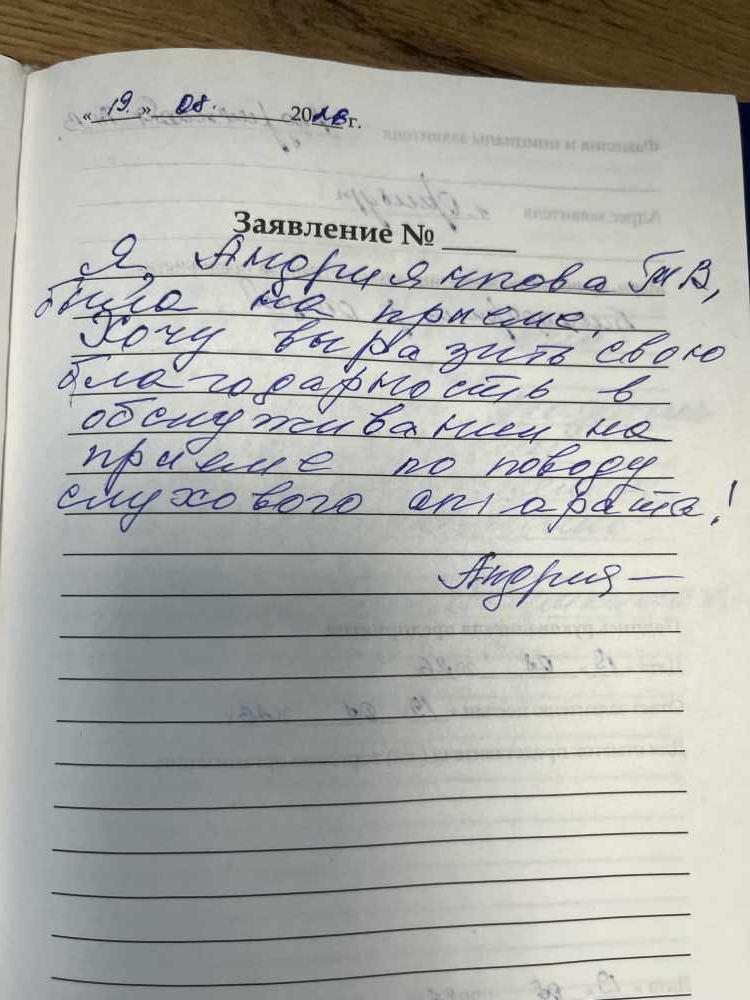 « 19. » 08. 2026 г.
Заявление №
Я, Андриянова Т.В,
была на приеме.
Хочу выразить свою
благодарность в
обслуживании на
приеме по поводу
слухового аппарата!
Андрия